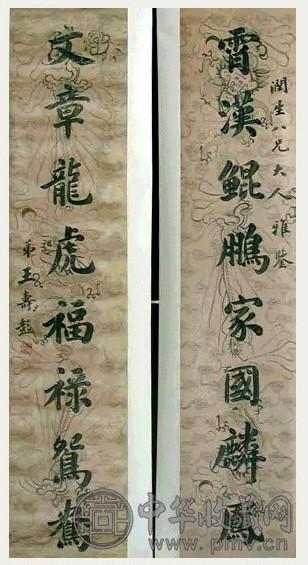 潤生八兄大人雅鑒
霄漢鯤鵬家國麟鳳
文章龍虎福祿鴛鴦
弟王壽彭
中华收藏网
www.pmv.cn